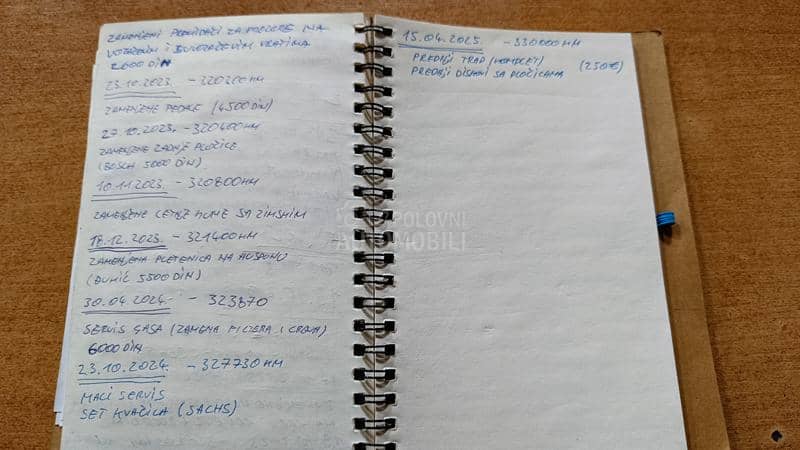 ZAMENJENI PODIZAČI ZA PROZORE NA
VOZAČEVIM I SUVOZAČEVIM VRATIMA
2600 DIN
23.10.2023. - 320200KM
ZAMENJENE PEDALE (4500 DIN)
27.10.2023. - 320400KM
ZAMENJENE ZADNJE PLOČICE
(BOSCH 5000 DIN)
10.11.2023. - 320800KM
ZAMENJENE LETNJE GUME SA ZIMSKIM
18.12.2023. - 321400KM
ZAMENJENA PLETENICA NA AUSPUHU
(ĐUNIĆ 5500 DIN)
30.04.2024. - 323870
SERVIS GASA (ZAMENA FILTERA I CREVA)
6000 DIN
23.10.2024. - 327730 KM
MALI SERVIS
SET KVAČILA (SACHS)
15.04.2025. - 330000 KM
PREDNJI TRAP (KOMPLET)
PREDNJI DISKOVI SA PLOČICAMA (250€)
POLOVNI
AUTOMOBILI